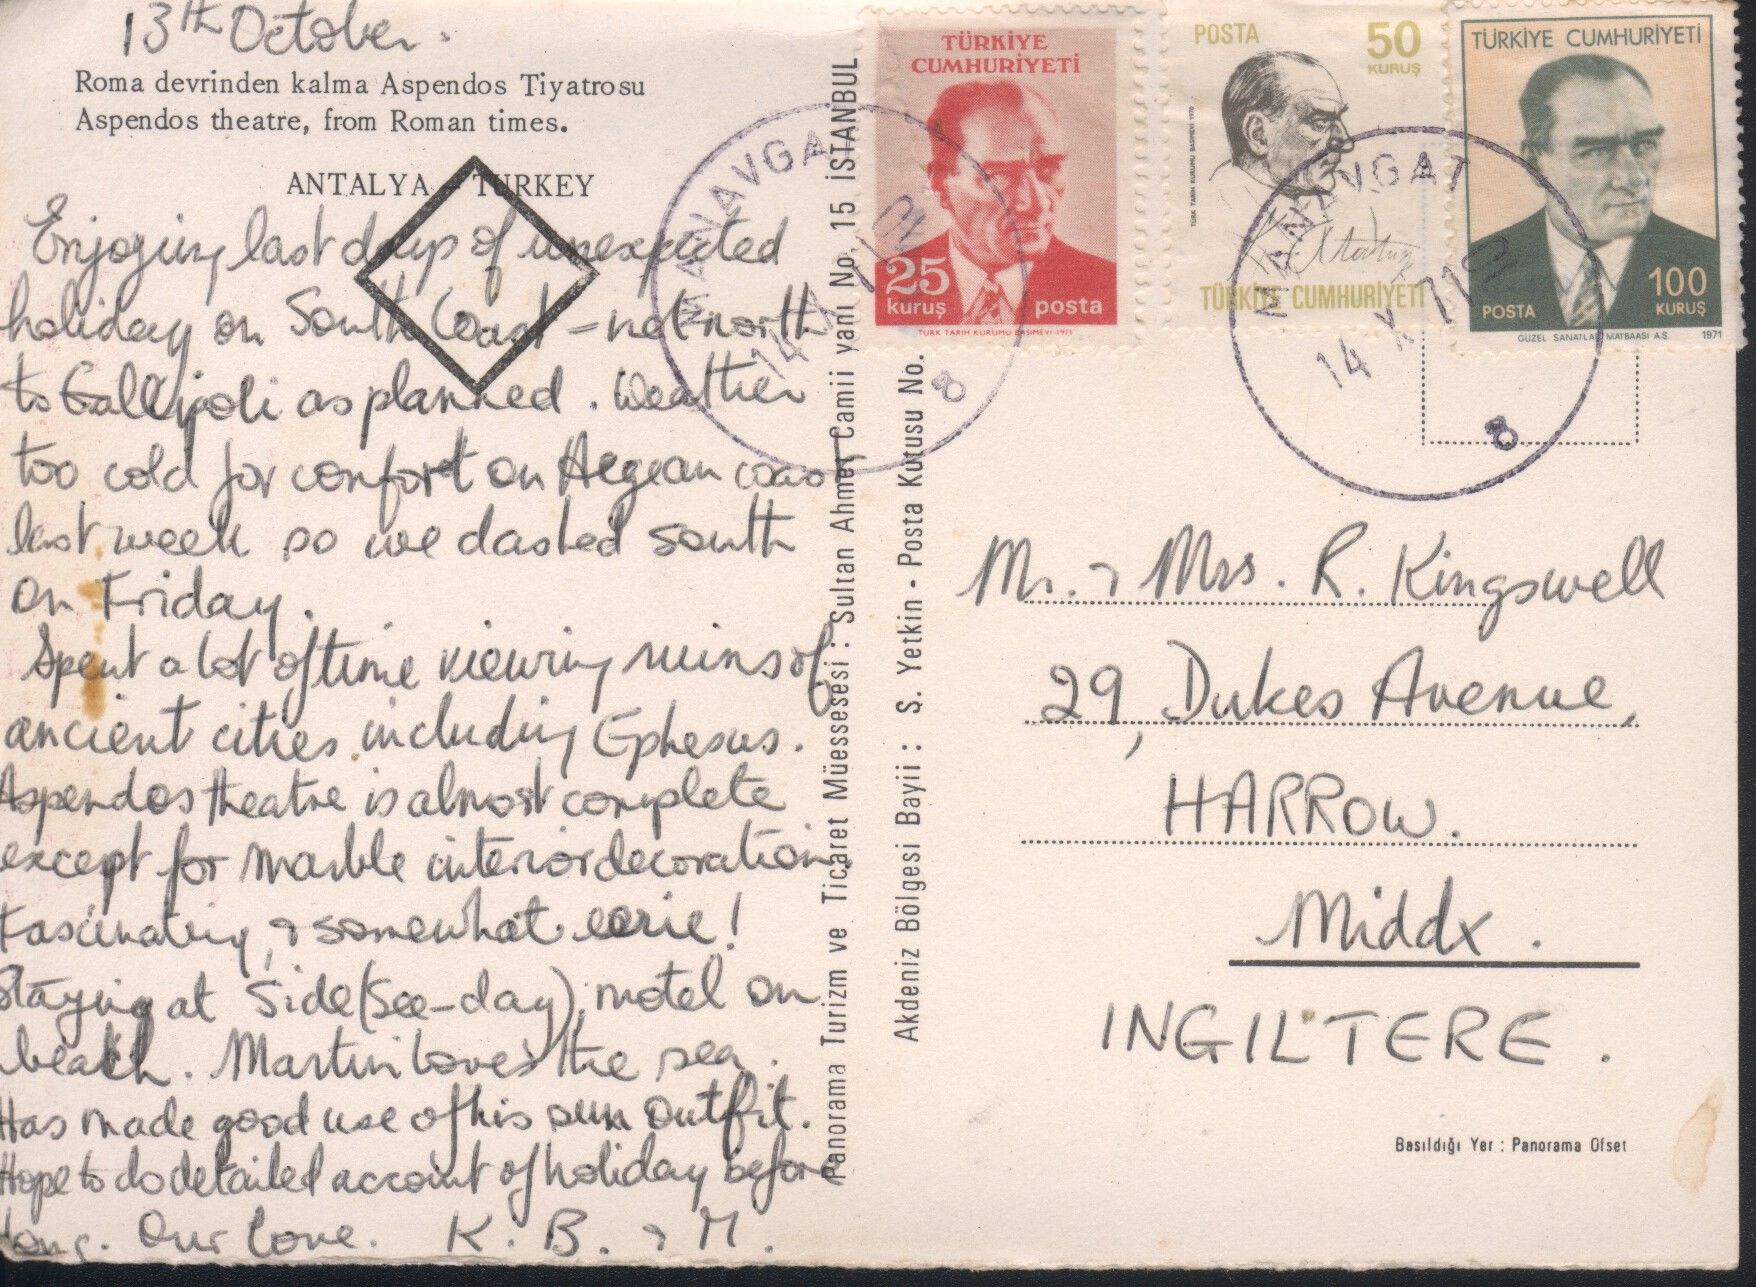 13th October.
Roma devrinden kalma Aspendos Tiyatrosu
Aspendos theatre, from Roman times.
ANTALYA - TURKEY
Enjoying last days of unexpected
holiday on South Coast - not north
to Gallipoli as planned. Weather
too cold for comfort on Aegean coast
last week so we dashed south
on Friday.
Spent a lot of time viewing ruins of
ancient cities including Ephesus.
Aspendos theatre is almost complete
except for marble interior decoration.
Fascinating, & somewhat eerie!
Staying at Side (See-day), motel on
beach. Martin loves the sea.
Has made good use of his sun outfit.
Hope to do detailed account of holiday before
long. Our love. K. B. & M.
Panorama Turizm ve Ticaret Müessesesi : Sultan Ahmet Camii yanı No. 15 İSTANBUL
Akdeniz Bölgesi Bayii : S. Yetkin - Posta Kutusu No.
TÜRKİYE
CUMHURİYETİ
25
kuruş
posta
TÜRK TARİH KURUMU BASIMEVİ-1971
POSTA
50
KURUŞ
TÜRK TARİH KURUMU BASIMEVİ 1970
K. Atatürk
TÜRKİYE CUMHURİYETİ
TÜRKİYE CUMHURİYETİ
POSTA
100
KURUŞ
GÜZEL SANATLAR MATBAASI A.Ş. 1971
MANAVGAT
14
8
MANAVGAT
14 X 71
8
Mr. & Mrs. R. Kingswell
29, Dukes Avenue,
HARROW.
Middx.
INGILTERE.
Basıldığı Yer : Panorama Ofset